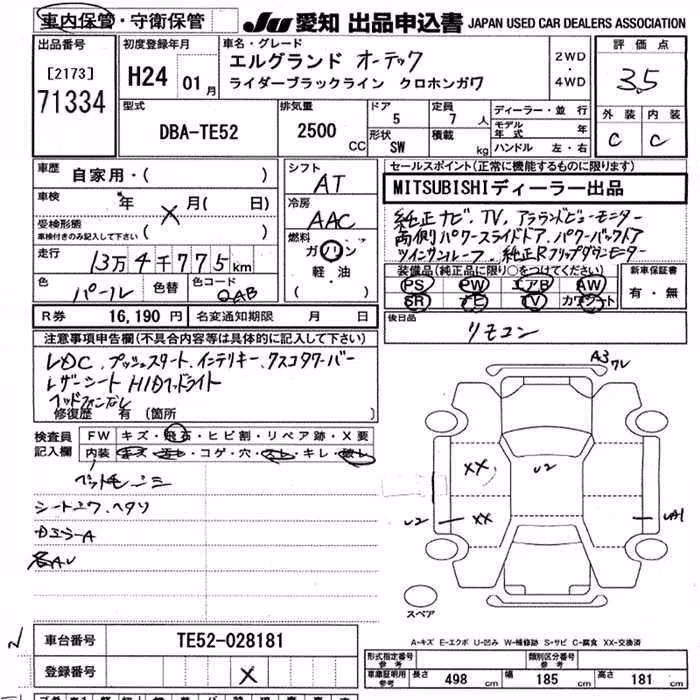 車内保管・守衛保管
JU 愛知 出品申込書 JAPAN USED CAR DEALERS ASSOCIATION
出品番号
[2173]
71334
初度登録年月
H24 01月
車名・グレード
エルグランド オーテック
ライダーブラックライン クロホンガワ
2WD
・
4WD
評価点
3.5
外装 内装
C C
型式
DBA-TE52
排気量
2500
CC
ドア
5
形状
SW
定員
7人
積載
kg
ディーラー・並行
モデル年式 年
ハンドル 左・右
車歴
自家用・( )
車検
年 月( 日)
受検形態
車検付きのみ記入して下さい ( )
走行
13万4千775km
色
パール
色替
色コード
QAB
シフト
AT
冷房
AAC
燃料
ガソリン
軽・油
( )
セールスポイント(正常に機能するものに限ります)
MITSUBISHIディーラー出品
純正ナビ、TV、アラウンドビューモニター
両側パワースライドドア、パワーバックドア
ツインサンルーフ、純正Rフリップダウンモニター
装備品(純正品に限り○をつけてください)
PS PW エアB AW
SR ナビ TV カワシート
新車保証書
有・無
R券 16,190 円 名変通知期限 月 日
後日品
リモコン
注意事項申告欄(不具合内容等は具体的に記入して下さい)
LDC、プッシュスタート、インテリキー、クスコタワーバー
レザーシート HIDヘッドライト
修復歴 有 (箇所
検査員
記入欄
FW キズ・飛石・ヒビ割・リペア跡・X要
内装 キズ・汚れ・コゲ・穴・スレ・キレ・破レ
シートシワ、ヘタリ
各AU
A3 ワレ
XX
U2
U2
XX
UA1
スペア
A-キズ E-エクボ U-凹み W-補修跡 S-サビ C-腐食 XX-交換済
車台番号 TE52-028181
登録番号
形式指定番号
参考
類別区分番号
参考
車庫証明用
参考
長さ 498 cm 幅 185 cm 高さ 181 cm